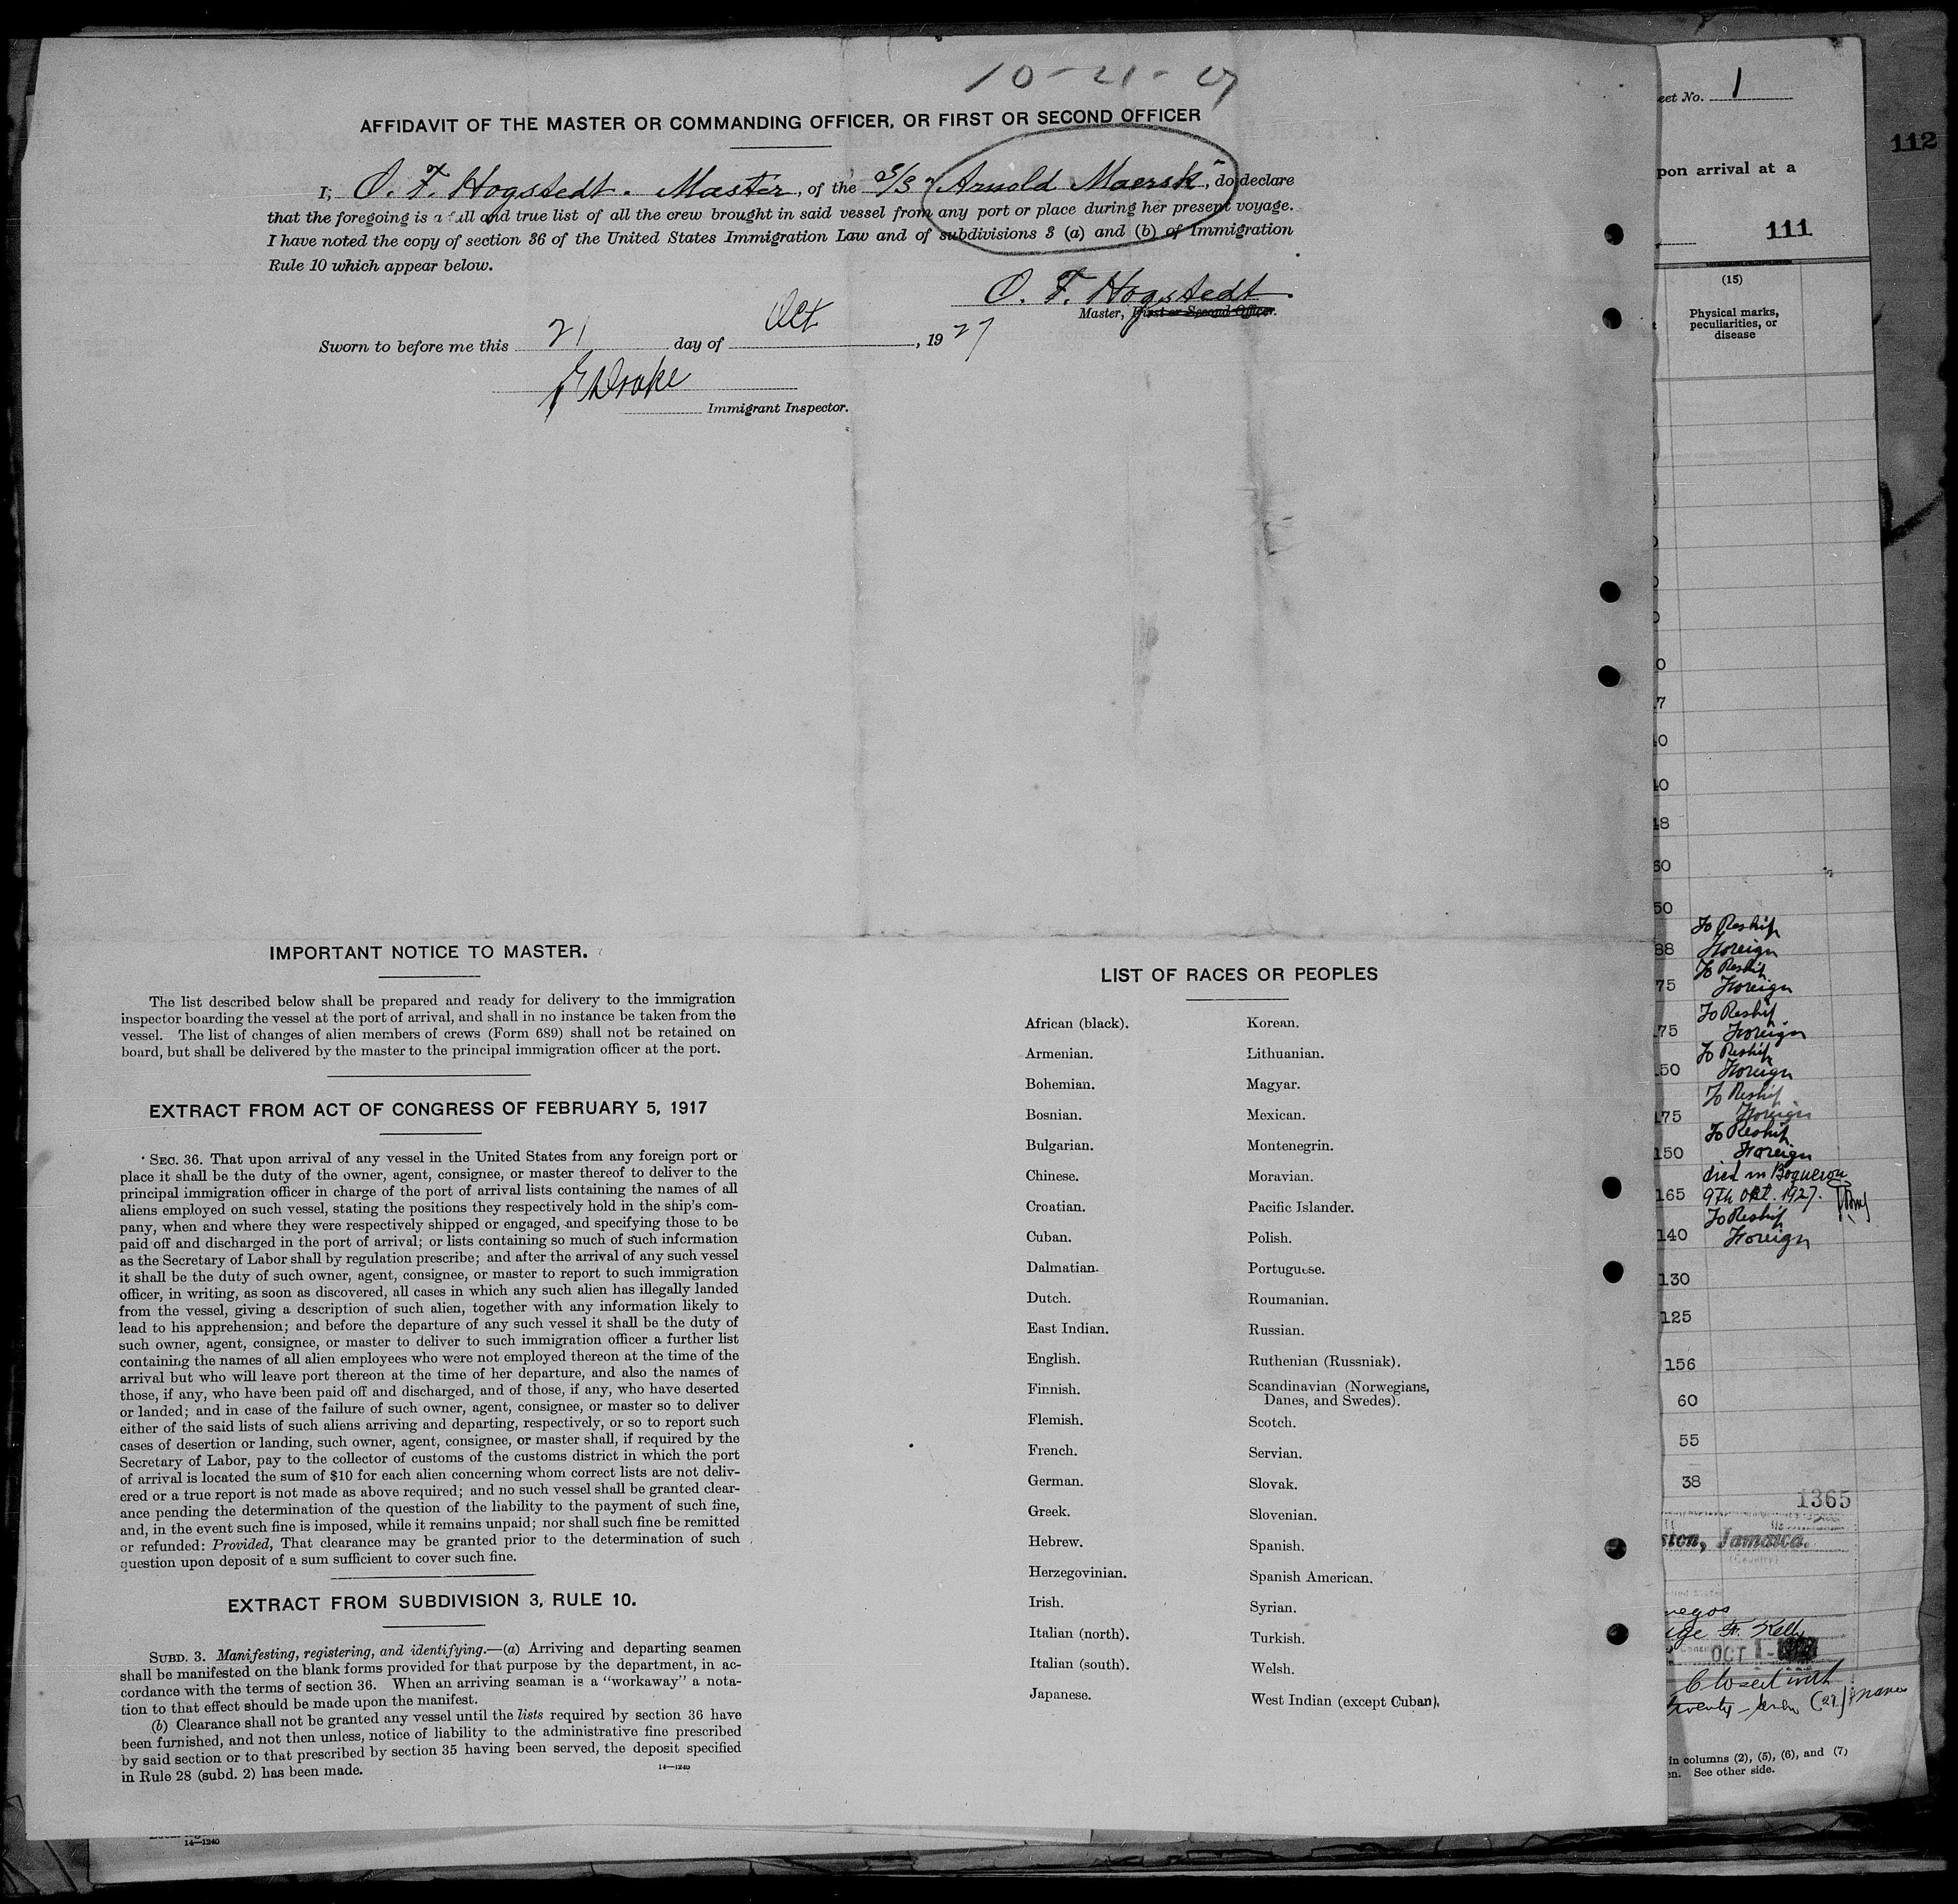 10-21-27
AFFIDAVIT OF THE MASTER OR COMMANDING OFFICER, OR FIRST OR SECOND OFFICER
I, O. F. Hogstedt. Master, of the S/S "Arnold Maersk", do declare
that the foregoing is a full and true list of all the crew brought in said vessel from any port or place during her present voyage.
I have noted the copy of section 36 of the United States Immigration Law and of subdivisions 3 (a) and (b) of Immigration
Rule 10 which appear below.
O. F. Hogstedt.
Master, First or Second Officer.
Sworn to before me this 21 day of Oct, 1927
Drake
Immigrant Inspector.
IMPORTANT NOTICE TO MASTER.
The list described below shall be prepared and ready for delivery to the immigration
inspector boarding the vessel at the port of arrival, and shall in no instance be taken from the
vessel. The list of changes of alien members of crews (Form 689) shall not be retained on
board, but shall be delivered by the master to the principal immigration officer at the port.
EXTRACT FROM ACT OF CONGRESS OF FEBRUARY 5, 1917
SEC. 36. That upon arrival of any vessel in the United States from any foreign port or
place it shall be the duty of the owner, agent, consignee, or master thereof to deliver to the
principal immigration officer in charge of the port of arrival lists containing the names of all
aliens employed on such vessel, stating the positions they respectively hold in the ship's com-
pany, when and where they were respectively shipped or engaged, and specifying those to be
paid off and discharged in the port of arrival; or lists containing so much of such information
as the Secretary of Labor shall by regulation prescribe; and after the arrival of any such vessel
it shall be the duty of such owner, agent, consignee, or master to report to such immigration
officer, in writing, as soon as discovered, all cases in which any such alien has illegally landed
from the vessel, giving a description of such alien, together with any information likely to
lead to his apprehension; and before the departure of any such vessel it shall be the duty of
such owner, agent, consignee, or master to deliver to such immigration officer a further list
containing the names of all alien employees who were not employed thereon at the time of the
arrival but who will leave port thereon at the time of her departure, and also the names of
those, if any, who have been paid off and discharged, and of those, if any, who have deserted
or landed; and in case of the failure of such owner, agent, consignee, or master so to deliver
either of the said lists of such aliens arriving and departing, respectively, or so to report such
cases of desertion or landing, such owner, agent, consignee, or master shall, if required by the
Secretary of Labor, pay to the collector of customs of the customs district in which the port
of arrival is located the sum of $10 for each alien concerning whom correct lists are not deliv-
ered or a true report is not made as above required; and no such vessel shall be granted clear-
ance pending the determination of the question of the liability to the payment of such fine,
and, in the event such fine is imposed, while it remains unpaid; nor shall such fine be remitted
or refunded: Provided, That clearance may be granted prior to the determination of such
question upon deposit of a sum sufficient to cover such fine.
EXTRACT FROM SUBDIVISION 3, RULE 10.
SUBD. 3. Manifesting, registering, and identifying.—(a) Arriving and departing seamen
shall be manifested on the blank forms provided for that purpose by the department, in ac-
cordance with the terms of section 36. When an arriving seaman is a "workaway" a nota-
tion to that effect should be made upon the manifest.
(b) Clearance shall not be granted any vessel until the lists required by section 36 have
been furnished, and not then unless, notice of liability to the administrative fine prescribed
by said section or to that prescribed by section 35 having been served, the deposit specified
in Rule 28 (subd. 2) has been made.
14—1240
LIST OF RACES OR PEOPLES
African (black).
Armenian.
Bohemian.
Bosnian.
Bulgarian.
Chinese.
Croatian.
Cuban.
Dalmatian.
Dutch.
East Indian.
English.
Finnish.
Flemish.
French.
German.
Greek.
Hebrew.
Herzegovinian.
Irish.
Italian (north).
Italian (south).
Japanese.
Korean.
Lithuanian.
Magyar.
Mexican.
Montenegrin.
Moravian.
Pacific Islander.
Polish.
Portuguese.
Roumanian.
Russian.
Ruthenian (Russniak).
Scandinavian (Norwegians,
Danes, and Swedes).
Scotch.
Servian.
Slovak.
Slovenian.
Spanish.
Spanish American.
Syrian.
Turkish.
Welsh.
West Indian (except Cuban).
14—1240
eet No. 1
112
pon arrival at a
111
(15)
Physical marks,
peculiarities, or
disease
50
To Reship
88 Foreign
To Reship
75 Foreign
To Reship
175 Foreign
To Reship
50 Foreign
To Reship
175 Foreign
To Reship
150 Foreign
died in Boqueron
165 9th Oct. 1927.
To Reship
140 Foreign
130
125
156
60
55
38
1365
ston, Jamaica.
(Country)
F. Kelly
OCT 1-
Closed with
twenty-seven (27) names
in columns (2), (5), (6), and (7)
en. See other side.